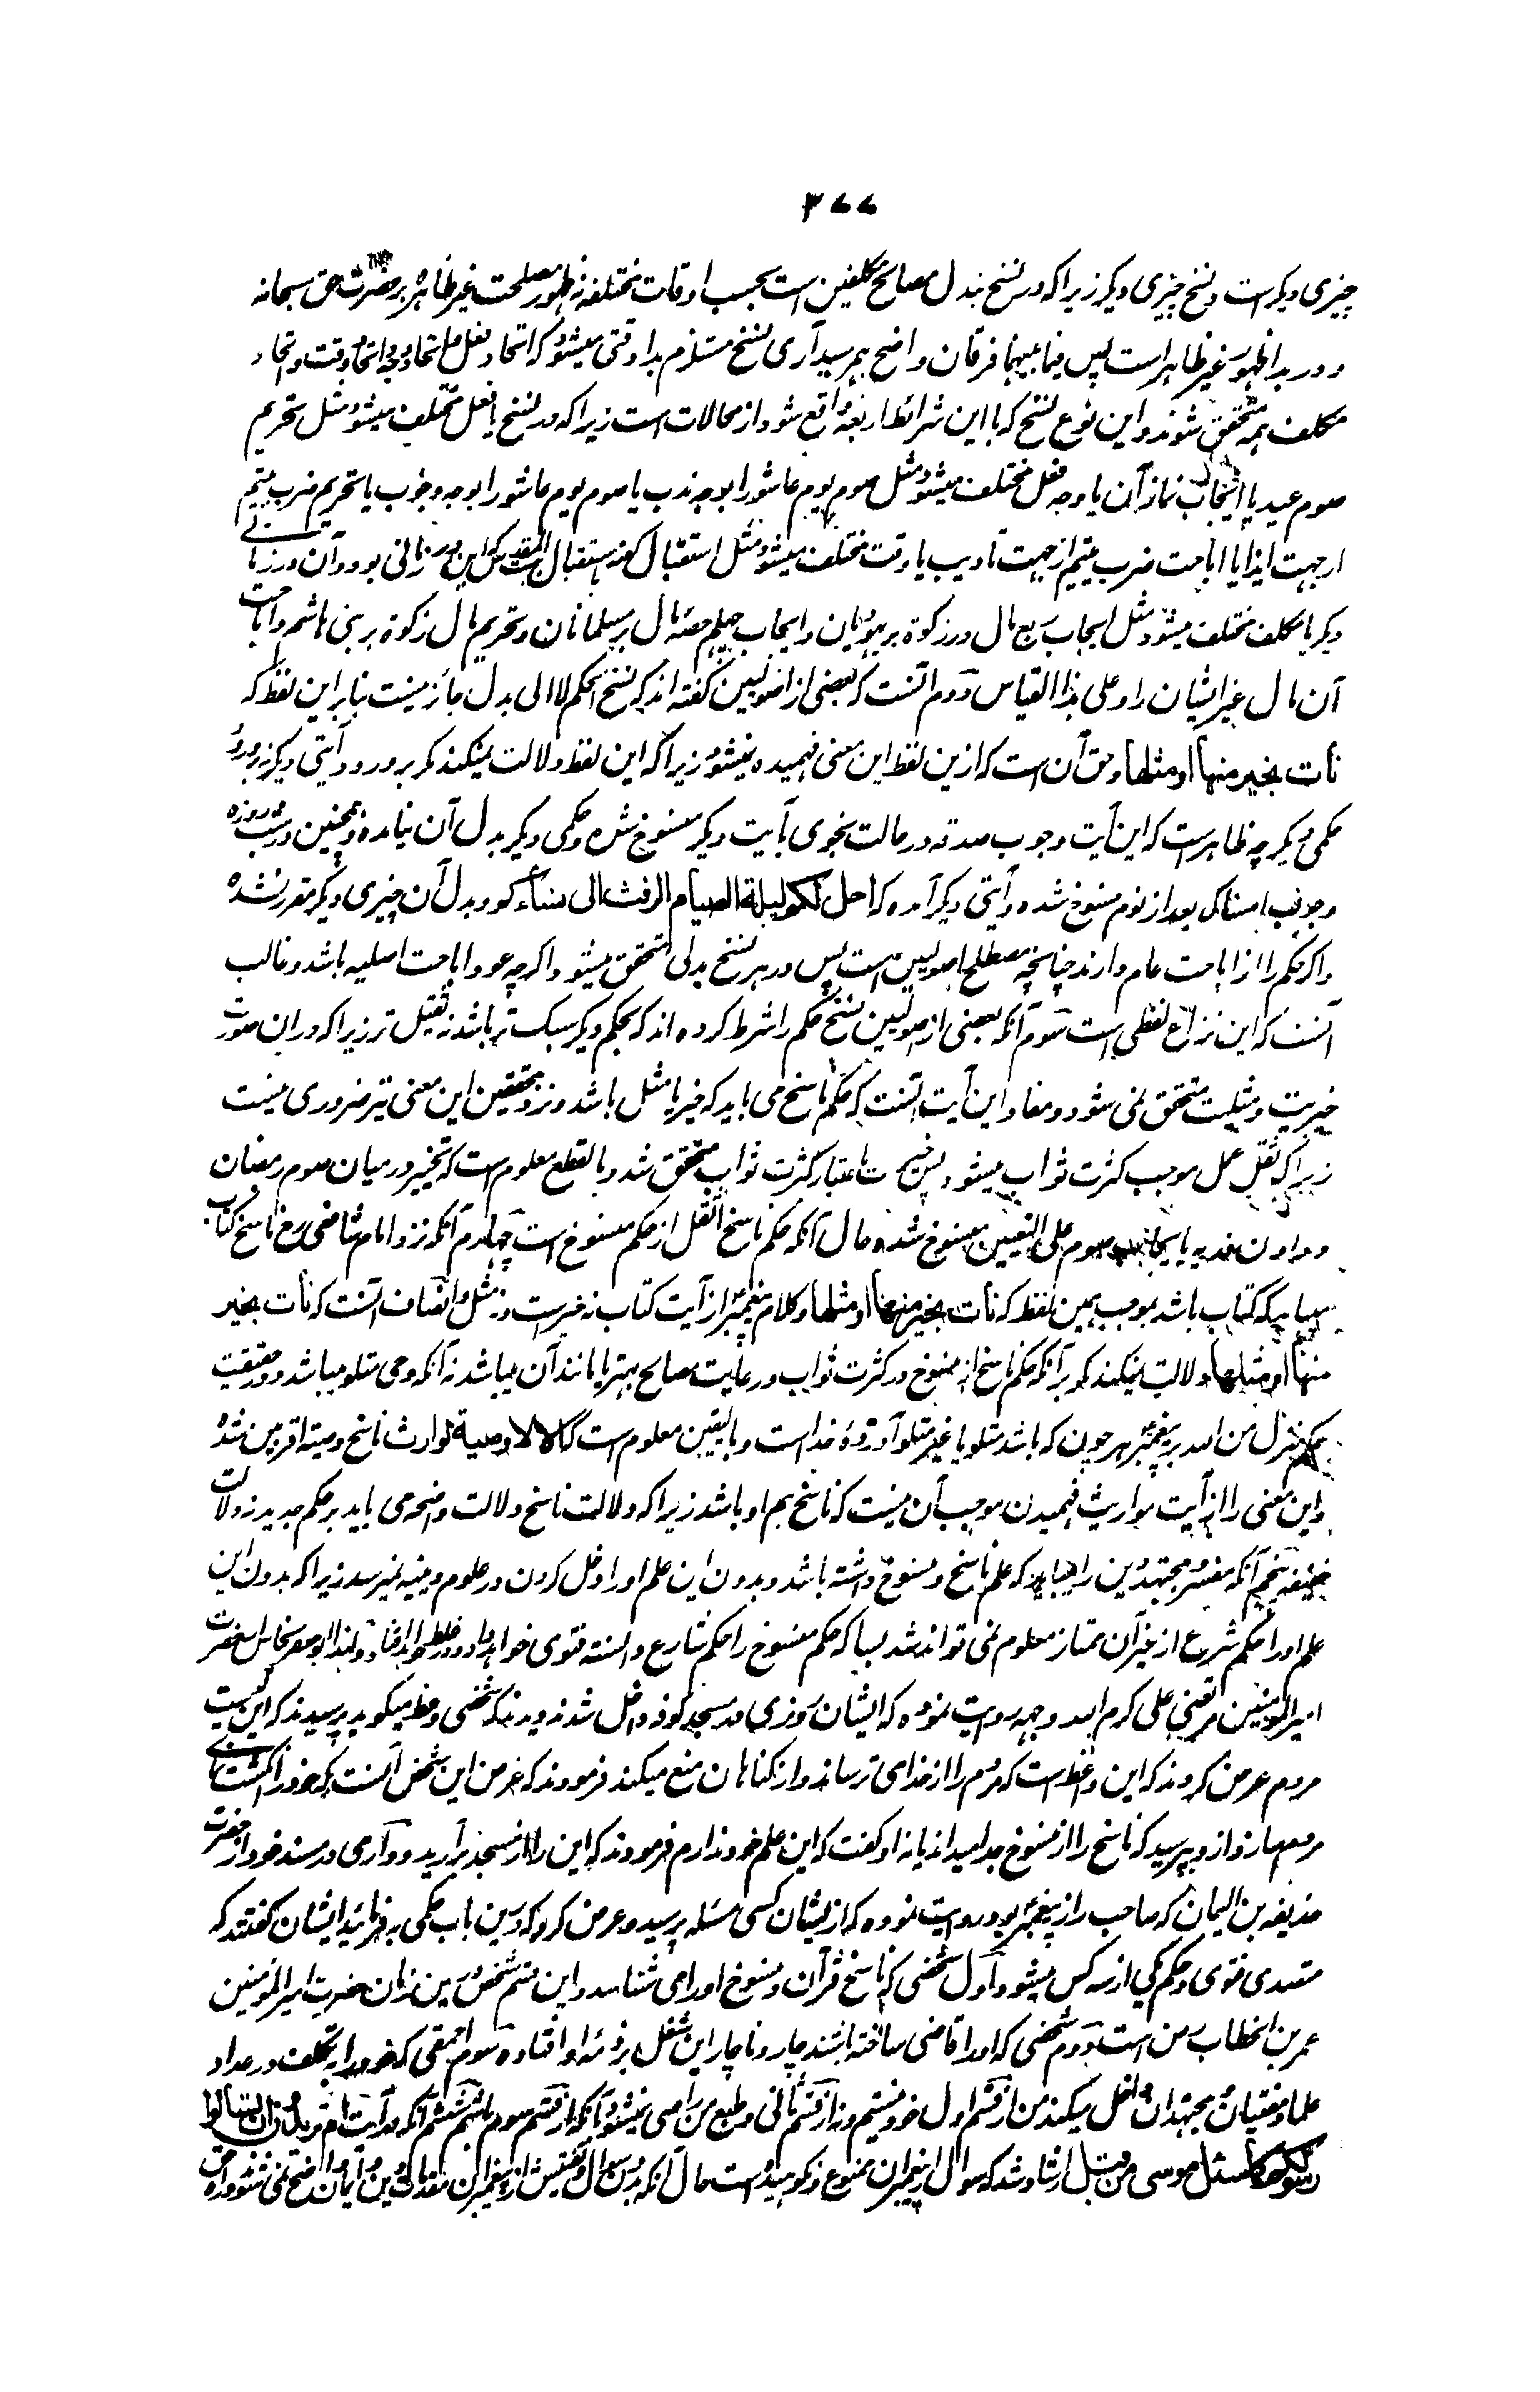 ۳۷۷
چیزی دیگر است و نسخ چیزی دیگر زیراکه در نسخ تبدل مصالح مکلفین است بحسب اوقات مختلفه نه ظهور مصلحت غیر ظاهره بر حضرت حق سبحانه
و در بدا ظهور غیر ظاهر است پس فیما بینهما فرقان واضح بهم رسید آری نسخ مستلزم بدا وقتی میشود که اتحاد فعل و اتحاد وجه و اتحاد وقت و اتحاد
مکلف همه متحقق شوند و این نوع نسخ که با این شرائط اربعه واقع شود از محالات است زیراکه در نسخ یا فعل مختلف میشود مثل تحریم
صوم عید یا ایجاب نماز آن یا وجه فعل مختلف میشود مثل صوم یوم عاشورا بوجه ندب یا صوم یوم عاشورا بوجه وجوب یا تحریم ضرب یتیم
از جهت ایذا یا اباحت ضرب یتیم از جهت تادیب یا وقت مختلف میشود مثل استقبال کعبه و استقبال بیت المقدس که این در زمانی بود و آن در زمانے
دیگر یا مکلف مختلف میشود مثل ایجاب ربع مال در زکوة بر یهودیان و ایجاب چهلم حصه مال بر مسلمانان و تحریم مال زکوة بر بنی هاشم و اباحت
آن مال غیر ایشان را و علی هذا القیاس دوم آنست که بعضی از اصولیین گفته اند که نسخ الحکم لا الی بدل جائز نیست بنابر این لفظ که
نات بخیر منها او مثلها و حق آن است که ازین لفظ این معنی فهمیده نمیشود زیراکه این لفظ دلالت نمیکند مگر بر ورود آیتی دیگر نه بر ورود
حکمی دیگر چه ظاهر است که این آیت وجوب صدقه در حالت نجوی بآیت دیگر منسوخ شده و حکمی دیگر بدل آن نیامده و همچنین در شب روزه
وجوب امساک بعد از نوم منسوخ شده و آیتی دیگر آمده که احل لکم لیلة الصیام الرفث الی نسائکم و بدل آن چیزی دیگر مقرر نشده
و اگر حکم را از اباحت عام دارند چنانچه مصطلح اصولیین است پس در هر نسخ بدلی متحقق میشود اگرچه عود اباحت اصلیه باشد و غالب
آنست که این نزاع لفظی است سوم آنکه بعضی از اصولیین نسخ حکم را شرط کرده اند که بحکم دیگر سبک تر باشد نه ثقیل تر زیراکه در ان صورت
خیریت و مثلیت متحقق نمی شود و مفاد این آیت آنست که حکم ناسخ می باید که خیر یا مثل باشد و نزد محققین این معنی نیز ضروری نیست
زیراکه ثقل عمل موجب کثرت ثواب میشود پس خیریت باعتبار کثرت ثواب متحقق شد و بالقطع معلوم است که تخییر در میان صوم رمضان
و دادن فدیه با یجاب صوم علی التعیین منسوخ شده حال آنکه حکم ناسخ اثقل از حکم منسوخ است چهارم آنکه نزد امام شافعی رح ناسخ کتاب
میباید که کتاب باشد بموجب همین لفظ که نات بخیر منها او مثلها و کلام پیغمبر از آیت کتاب نه خیر است و نه مثل و انصاف آنست که نات بخیر
منها او مثلها دلالت نمیکند مگر بر آنکه حکم ناسخ از منسوخ در کثرت ثواب و رعایت مصالح بهتر یا مانند آن میباشد نه آنکه وحی متلو میباشد و در حقیقت
حکم منزل من الله بر پیغمبر هر چون که باشد متلو یا غیر متلو آورده خدا است و بالیقین معلوم است که الا لا وصیة لوارث ناسخ وصیت اقربین شده
و این معنی را از آیت مواریث فهمیدن موجب آن نیست که ناسخ هم او باشد زیراکه دلالت ناسخ دلالت واضحه می باید بر حکم جدید نه دلالت
خفیفه پنجم آنکه مفسر و مجتهد دین را میباید که علم ناسخ و منسوخ داشته باشد و بدون این علم او را دخل کردن در علوم دینیه نمیرسد زیراکه بدون این
علم او را حکم شرع از غیر آن ممتاز معلوم نمی تواند شد بسا که حکم منسوخ را حکم شارع دانسته فتوی خواهد داد و در غلط خواهد افتاد و لهذا ابو جعفر نحاس از حضرت
امیر المومنین مرتضی علی کرم الله وجهه روایت نموده که ایشان روزی در مسجد کوفه داخل شدند دیدند که شخصی وعظ میگوید پرسیدند که این کیست
مردم عرض کردند که این واعظ است که مردم را از خدا می ترساند و از گناهان منع میکند فرمودند که غرض این شخص آنست که خود را انگشت نمای
مردم سازد ازو بپرسید که ناسخ را از منسوخ جدا میداند یا نه او گفت که این علم خود ندارم فرمودند که این را از مسجد بر آرید و دارمی در مسند خود از حضرت
حذیفه بن الیمان که صاحب راز پیغمبر بود روایت نموده که از ایشان کسی مسئله پرسید و عرض کرد که درین باب حکمی بفرمائید ایشان گفتند که
متصدی فتوی و حکم یکی از سه کس میشود اول شخصی که ناسخ قرآن و منسوخ او را می شناسد و این قسم شخص درین زمان حضرت امیر المومنین
عمر بن الخطاب رض است دوم شخصی که او را قاضی ساخته باشند چار و ناچار این شغل بر ذمه او افتاده سوم احمقی که خود را به تکلف در عداد
علما و مفتیان و مجتهدان داخل میکند من از قسم اول خود نیستم و نه از قسم ثانی و طبع من راضی نمیشود بآنکه از قسم سوم باشم ششم آنکه در آیت ام تریدون ان تسالوا
رسولکم کما سئل موسی من قبل ارشاد شد که سوال از پیغمبران ممنوع و نکوهیده است حال آنکه بدون سوال و تفتیش از پیغمبران مقدمات دین و ایمان واضح نمی شود و راه حق